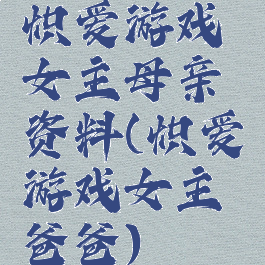 炽爱游戏
女主母亲
资料(炽爱
游戏女主
爸爸)